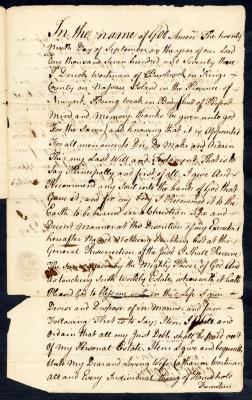 In the name of God Amen The twenty
Ninth Day of September in the year of our Lord
One thousand Seven hundred and Seventy three
I Derick Workman of Bushwick in Kings
County on Nassau Island in the Province of
Newyork Being weak in Body but of Perfect
Mind and Memory thanks be given unto god
For the Same and knowing that it is Appointed
For all men once to Die Do Make and Ordain
This my Last Will and Testament That is to
Say Principally and first of all I give And
Recommend my Soul into the hands of God that
Gave it and for my Body I Recommend it to the
Earth to be buried in a Christian like and
Decent Manner at the Discretion of my Executors
hereafter Named Nothing Doubting but at the
General Resurrection of the Just I Shall Receive
the Same again by the Mighty Power of God And
as touching Such Worldly Estate wherewith it hath
Pleased God to bless me in this Life I give
Devise and Dispose of in Manner and Form
Following That is to Say Item I will and
ordain that all my Just Debts shall be paid out
of my Personal Estate Item I give and bequeath
Unto My Dear and Loving Wife Catharian Workman
all and Every Individual thing of Household
Furniture